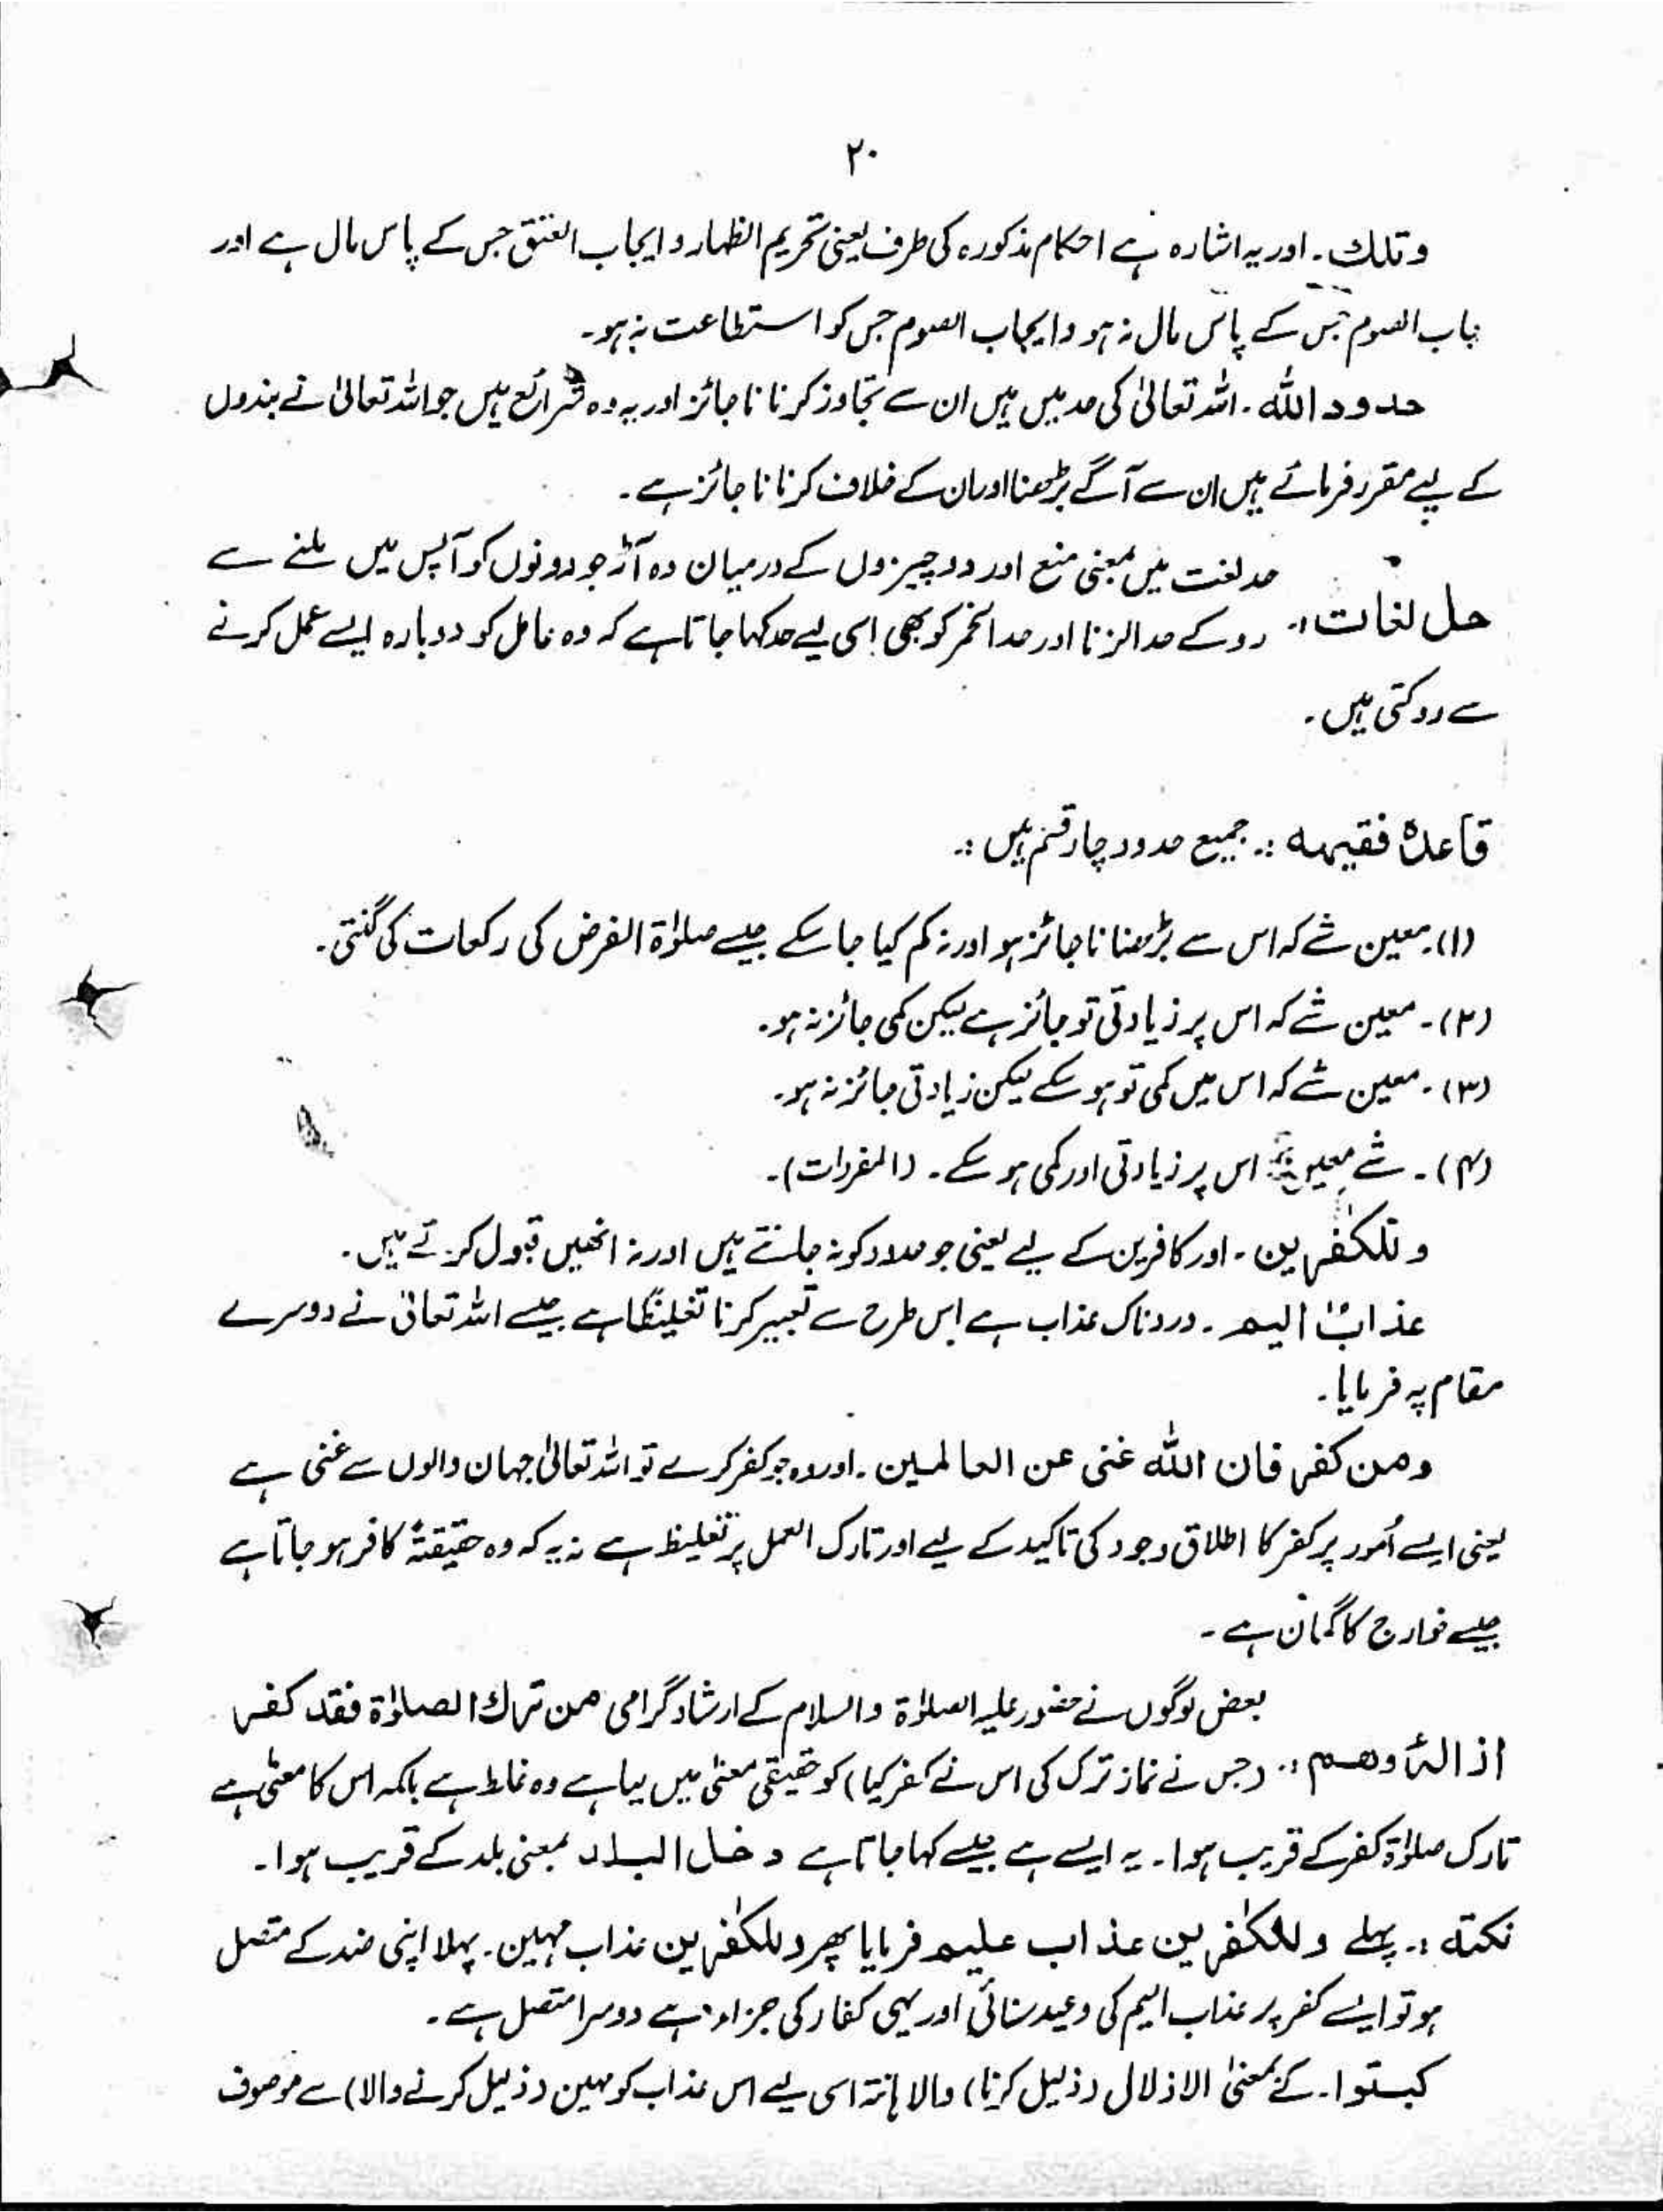 ۲۰
وتلك ۔ اور یہ اشارہ ہے احکام مذکورہ کی طرف یعنی تحریم الظہار و ایجاب العتق جس کے پاس مال ہے اور
باب الصوم جس کے پاس مال نہ ہو و ایجاب الصوم جس کو استطاعت نہ ہو۔
حدود الله ۔ اللہ تعالیٰ کی حدیں ہیں ان سے تجاوز کرنا ناجائز اور یہ وہ شرائع ہیں جو اللہ تعالیٰ نے بندوں
کے لیے مقرر فرمائے ہیں ان سے آگے بڑھنا اور ان کے خلاف کرنا ناجائز ہے۔
حد لغت میں بمعنی منع اور دو چیزوں کے درمیان وہ آڑ جو دونوں کو آپس میں ملنے سے
حل لغات :۔ روکے حد الزنا اور حد الخمر کو بھی اسی لیے حد کہا جاتا ہے کہ وہ عامل کو دوبارہ ایسے عمل کرنے
سے روکتی ہیں۔
قاعدۂ فقیہہ :۔ جمیع حدود چار قسم ہیں :۔
(۱)۔ معین شے کہ اس سے بڑھنا ناجائز ہو اور نہ کم کیا جا سکے جیسے صلوٰۃ الفرض کی رکعات کی گنتی۔
(۲)۔ معین شے کہ اس پر زیادتی تو جائز ہے لیکن کمی جائز نہ ہو۔
(۳)۔ معین شے کہ اس میں کمی تو ہو سکے لیکن زیادتی جائز نہ ہو۔
(۴)۔ شے معین اس پر زیادتی اور کمی ہو سکے۔ (المفردات)۔
وللکٰفرین ۔ اور کافرین کے لیے یعنی جو حدود کو نہ جانتے ہیں اور نہ انھیں قبول کرتے ہیں۔
عذابٌ الیم ۔ دردناک عذاب ہے اس طرح سے تعبیر کرنا تغلیظًا ہے جیسے اللہ تعالیٰ نے دوسرے
مقام پہ فرمایا۔
ومن کفر فان الله غنی عن العالمین ۔ اور وہ جو کفر کرے تو اللہ تعالیٰ جہان والوں سے غنی ہے
یعنی ایسے اُمور پر کفر کا اطلاق وجود کی تاکید کے لیے اور تارک العمل پر تغلیظ ہے نہ یہ کہ وہ حقیقۃً کافر ہو جاتا ہے
جیسے خوارج کا گمان ہے۔
بعض لوگوں نے حضور علیہ الصلوٰۃ والسلام کے ارشاد گرامی من ترك الصلوٰۃ فقد کفر
ازالۂ وھم :۔ (جس نے نماز ترک کی اس نے کفر کیا) کو حقیقی معنیٰ میں لیا ہے وہ غلط ہے بلکہ اس کا معنٰی ہے
تارک صلوٰۃ کفر کے قریب ہوا۔ یہ ایسے ہے جیسے کہا جاتا ہے دخل البلد بمعنی بلد کے قریب ہوا۔
نکتہ :۔ پہلے وللکٰفرین عذاب علیم فرمایا پھر وللکٰفرین عذاب مہین۔ پہلا اپنی ضد کے متصل
ہو تو ایسے کفر پر عذاب الیم کی وعید سنائی اور یہی کفار کی جزاء ہے دوسرا متصل ہے۔
کبتوا۔ کے بمعنیٰ الاذلال (ذلیل کرنا) والاہانۃ اسی لیے اس عذاب کو مہین (ذلیل کرنے والا) سے موصوف